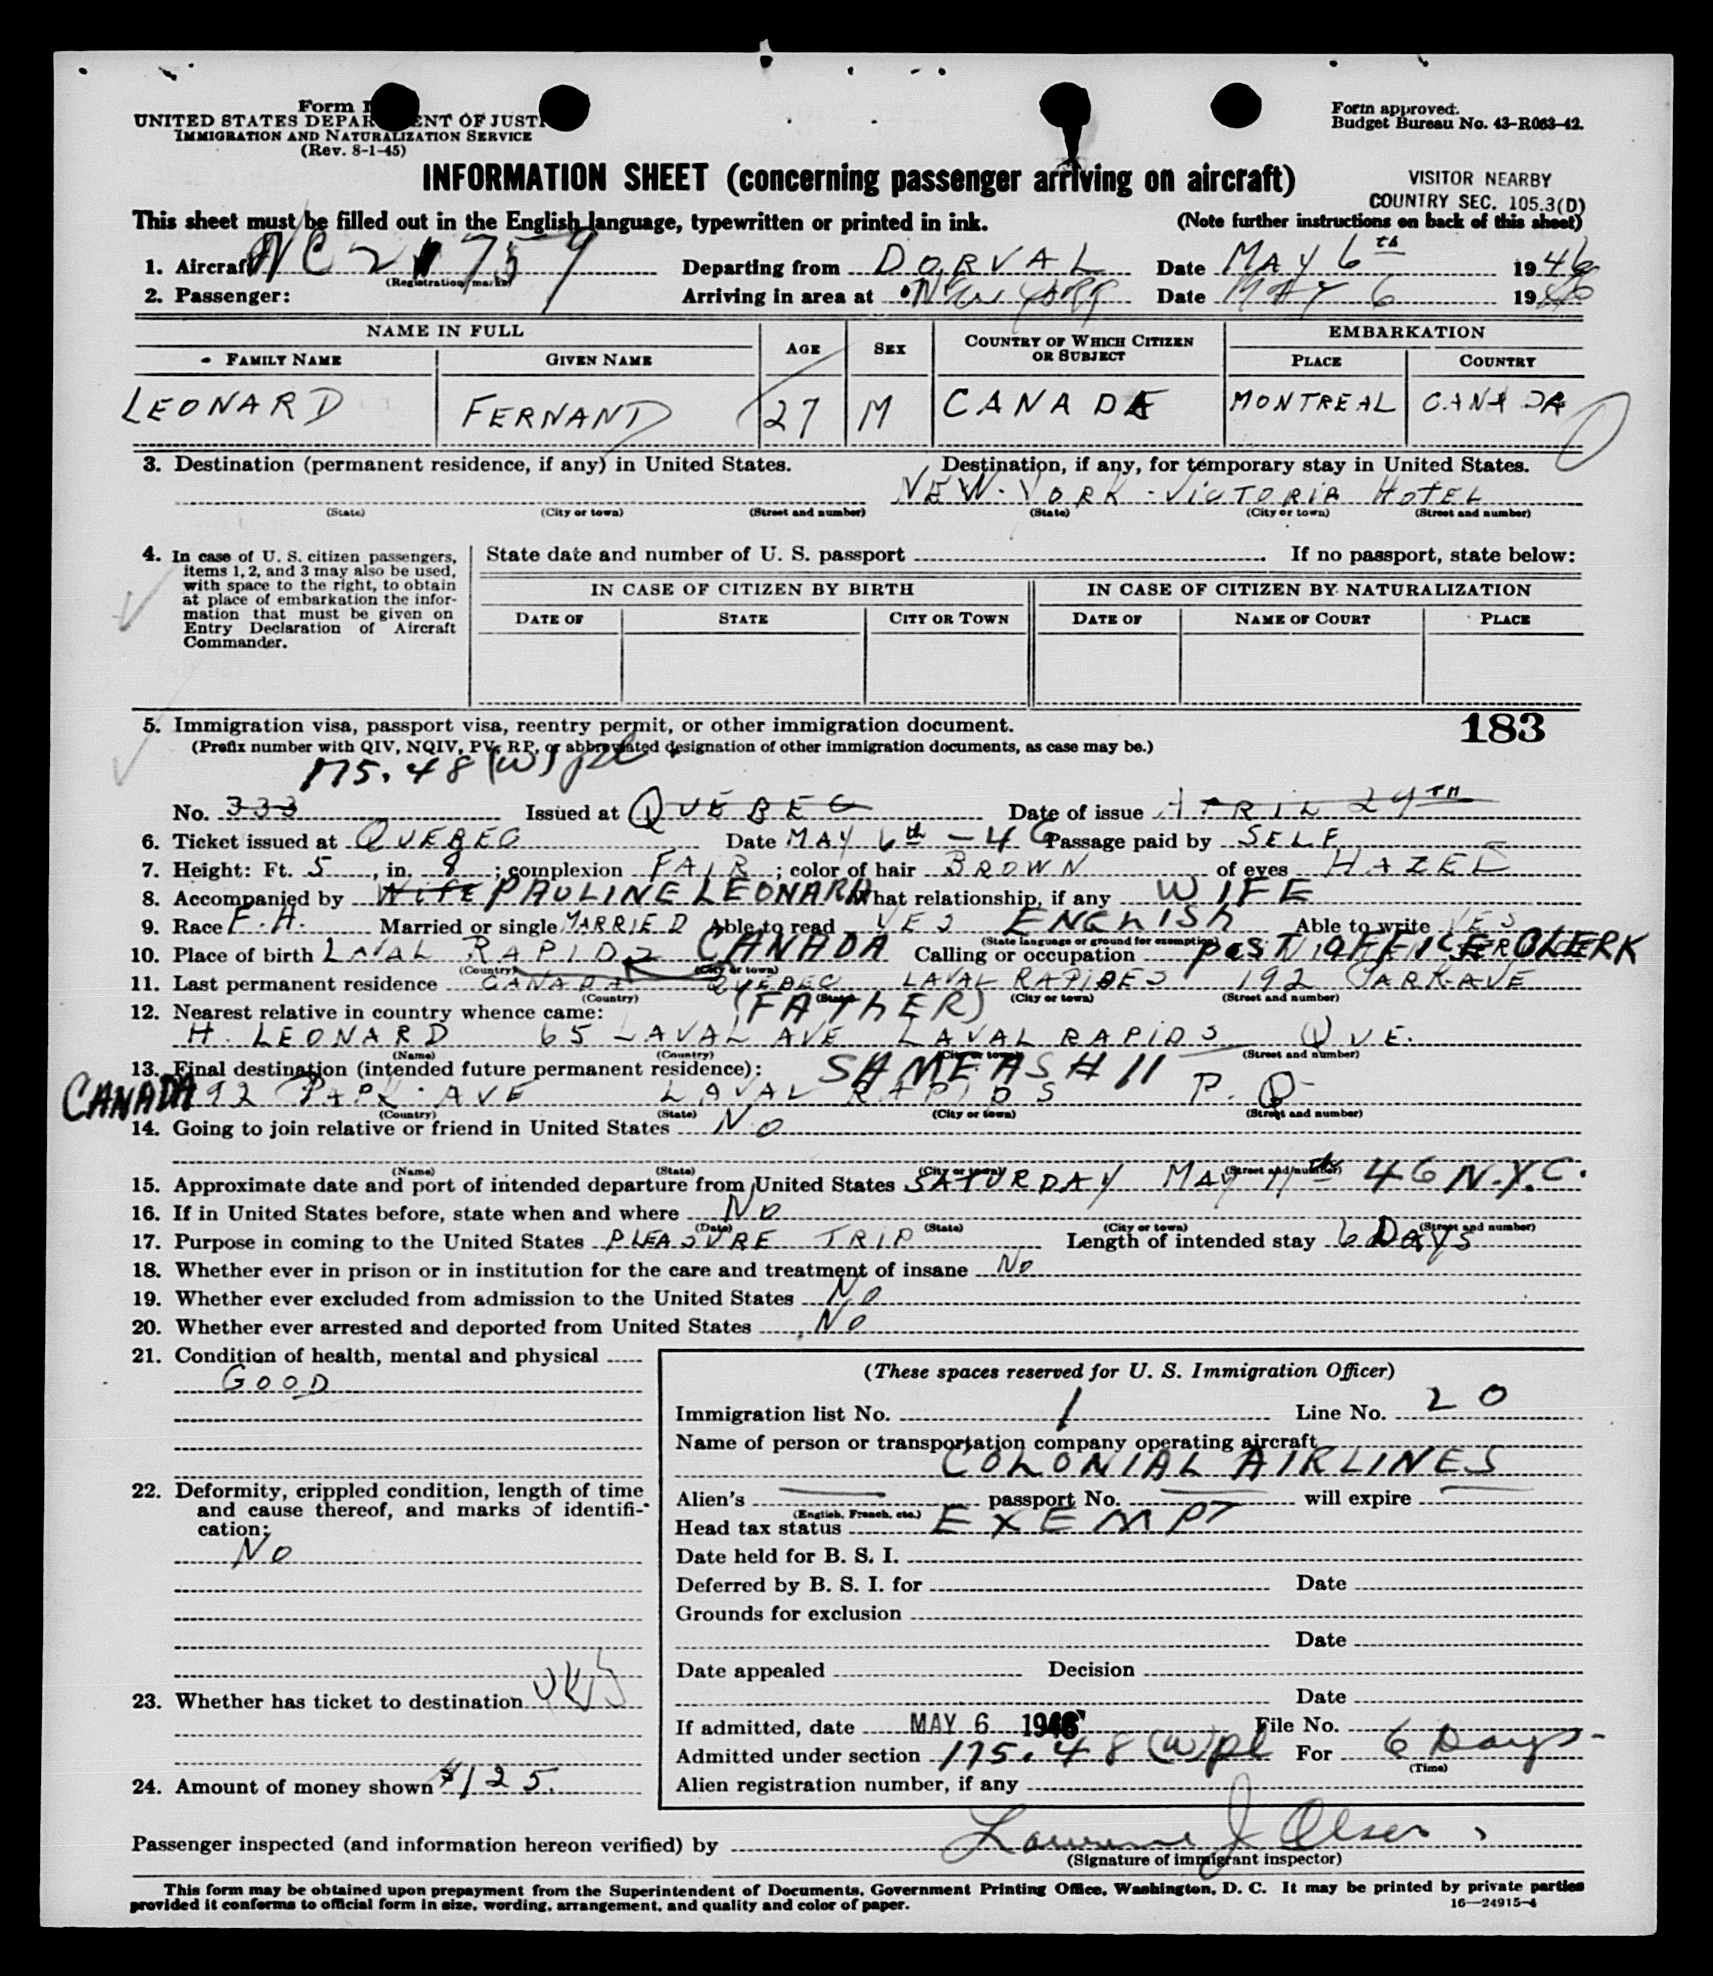 Form I
UNITED STATES DEPARTMENT OF JUSTI
IMMIGRATION AND NATURALIZATION SERVICE
(Rev. 8-1-45)
Form approved.
Budget Bureau No. 43-R063-42.
INFORMATION SHEET (concerning passenger arriving on aircraft)
VISITOR NEARBY
COUNTRY SEC. 105.3(D)
This sheet must be filled out in the English language, typewritten or printed in ink. (Note further instructions on back of this sheet)
1. Aircraft NC21759 Departing from DORVAL Date MAY 6th 1946
(Registration marks)
2. Passenger: Arriving in area at NEW YORK Date MAY 6 1946
NAME IN FULL AGE SEX COUNTRY OF WHICH CITIZEN OR SUBJECT EMBARKATION
FAMILY NAME GIVEN NAME PLACE COUNTRY
LEONARD FERNAND 27 M CANADA MONTREAL CANADA
3. Destination (permanent residence, if any) in United States. Destination, if any, for temporary stay in United States.
NEW-YORK - VICTORIA HOTEL
(State) (City or town) (Street and number) (State) (City or town) (Street and number)
4. In case of U. S. citizen passengers, items 1, 2, and 3 may also be used, with space to the right, to obtain at place of embarkation the information that must be given on Entry Declaration of Aircraft Commander.
State date and number of U. S. passport If no passport, state below:
IN CASE OF CITIZEN BY BIRTH IN CASE OF CITIZEN BY NATURALIZATION
DATE OF STATE CITY OR TOWN DATE OF NAME OF COURT PLACE
5. Immigration visa, passport visa, reentry permit, or other immigration document. 183
(Prefix number with QIV, NQIV, PV, RP, or abbreviated designation of other immigration documents, as case may be.)
175.48 (W) pl
No. 333 Issued at QUEBEC Date of issue APRIL 24TH
6. Ticket issued at QUEBEC Date MAY 6th - 46 Passage paid by SELF
7. Height: Ft. 5, in. 8; complexion FAIR; color of hair BROWN of eyes HAZEL
8. Accompanied by Wife PAULINE LEONARD What relationship, if any WIFE
9. Race F.H. Married or single MARRIED Able to read YES ENGLISH Able to write YES
(State language or ground for exemption)
10. Place of birth LAVAL RAPIDS CANADA Calling or occupation POST OFFICE CLERK
(Country) (City or town)
11. Last permanent residence CANADA QUEBEC LAVAL RAPIDES 192 PARK AVE
(Country) (State) (City or town) (Street and number)
12. Nearest relative in country whence came: (FATHER)
H. LEONARD 65 LAVAL AVE LAVAL RAPIDS QUE.
(Name) (Country) (City or town) (Street and number)
13. Final destination (intended future permanent residence): SAME AS # 11
CANADA 192 PARK AVE LAVAL RAPIDS P.Q.
(Country) (State) (City or town) (Street and number)
14. Going to join relative or friend in United States NO
(Name) (State) (City or town) (Street and number)
15. Approximate date and port of intended departure from United States SATURDAY MAY 11th 46 N.Y.C.
16. If in United States before, state when and where NO
(Date) (State) (City or town) (Street and number)
17. Purpose in coming to the United States PLEASURE TRIP Length of intended stay 6 Days
18. Whether ever in prison or in institution for the care and treatment of insane NO
19. Whether ever excluded from admission to the United States NO
20. Whether ever arrested and deported from United States NO
21. Condition of health, mental and physical
GOOD
22. Deformity, crippled condition, length of time and cause thereof, and marks of identification:
NO
23. Whether has ticket to destination
24. Amount of money shown $125.
(These spaces reserved for U. S. Immigration Officer)
Immigration list No. 1 Line No. 20
Name of person or transportation company operating aircraft
COLONIAL AIRLINES
Alien's passport No. will expire
(English, French, etc.)
Head tax status EXEMPT
Date held for B. S. I.
Deferred by B. S. I. for Date
Grounds for exclusion
Date
Date appealed Decision
Date
If admitted, date MAY 6 1946 File No.
Admitted under section 175.48 (W) pl For 6 Days
(Time)
Alien registration number, if any
Passenger inspected (and information hereon verified) by Lawrence J Olsen
(Signature of immigrant inspector)
This form may be obtained upon prepayment from the Superintendent of Documents, Government Printing Office, Washington, D. C. It may be printed by private parties
provided it conforms to official form in size, wording, arrangement, and quality and color of paper. 16—24915-4